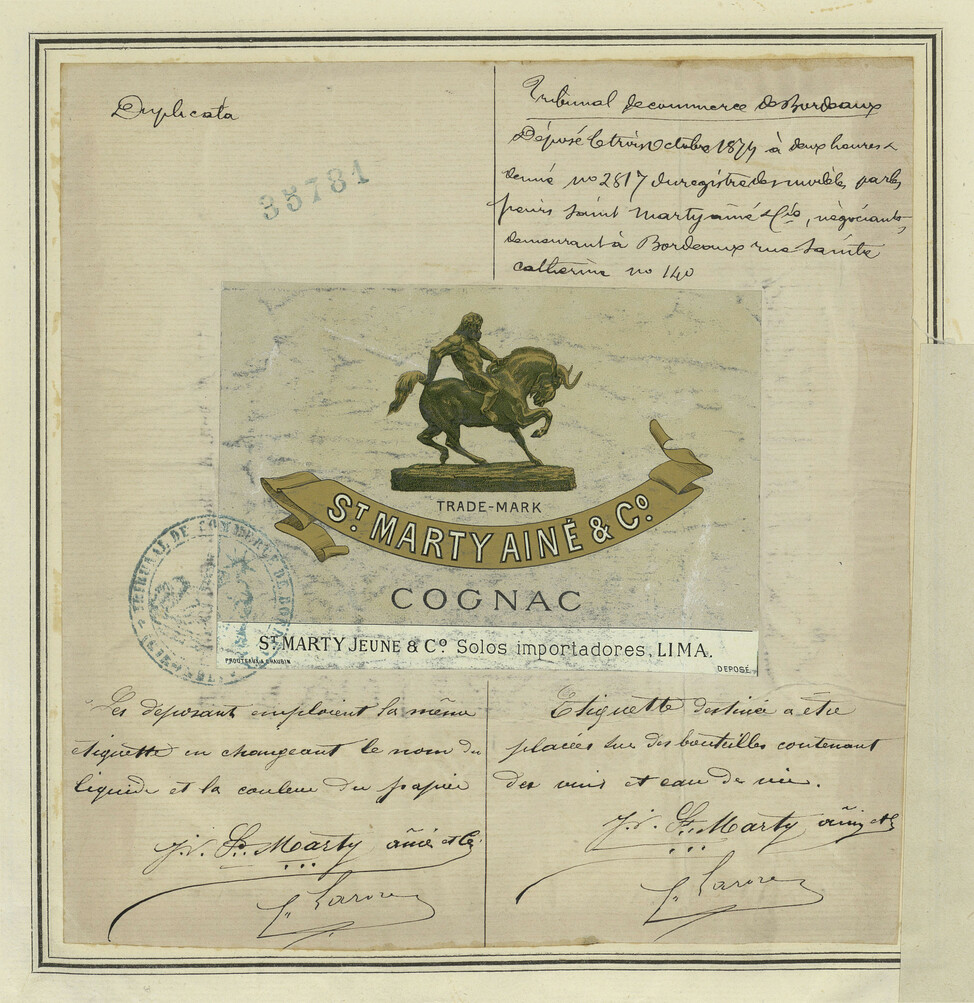 Duplicata
35781
Tribunal de commerce de Bordeaux
Déposé le trois Octobre 1874 à deux heures &
demie no 2817 du registre des modèles par les
sieurs Saint Marty aîné & Cie, négociants,
demeurant à Bordeaux rue Sainte
Catherine no 140
TRADE-MARK
ST MARTY AINÉ & Co
COGNAC
ST MARTY JEUNE & Co Solos importadores, LIMA.
PROUTEAUX & CHAUBIN
DEPOSÉ.
TRIBUNAL DE COMMERCE DE
Les déposant emploient la même
étiquette en changeant le nom du
liquide et la couleur du papier
St Marty ainé et Cie
Etiquette destinée a être
placées sur des bouteilles contenant
des vins et eau de vie.
St Marty ainé et Cie